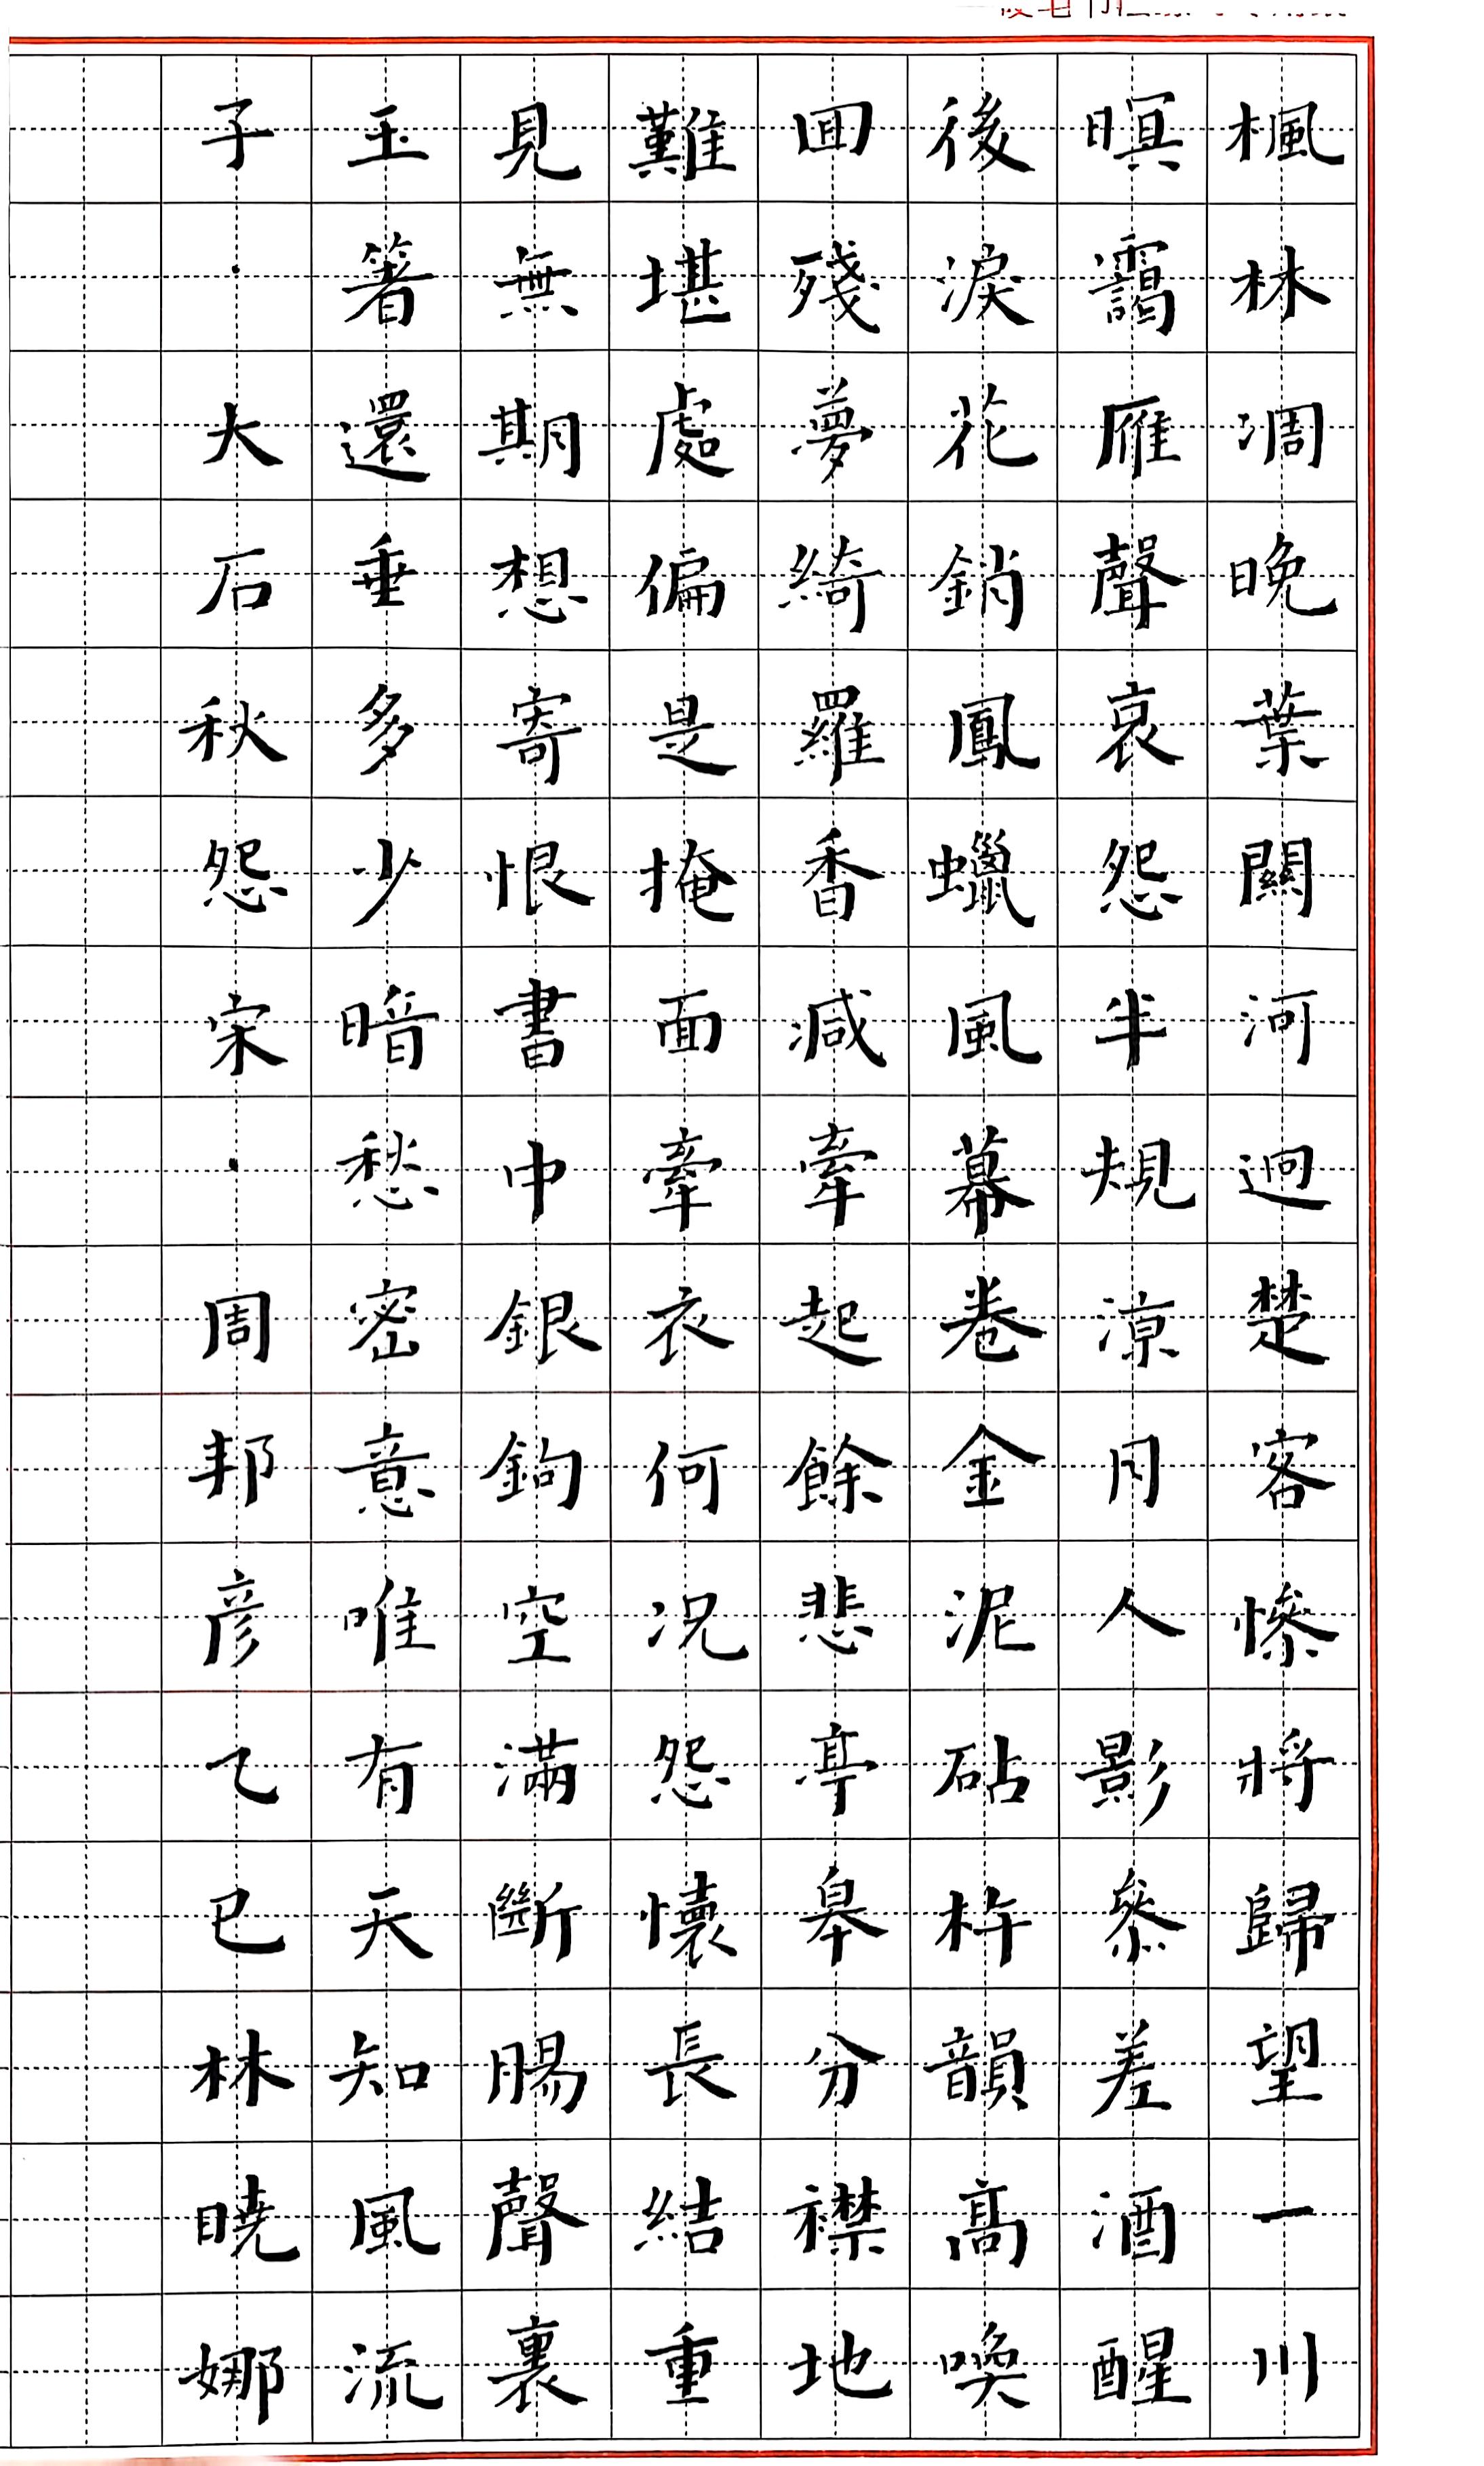 楓林凋晚葉關河迥楚客慘將歸望一川
暝靄雁聲哀怨半規涼月人影參差酒醒
後淚花銷鳳蠟風幕卷金泥砧杵韻高喚
回殘夢綺羅香減牽起餘悲亭皋分襟地
難堪處偏是掩面牽衣何況怨懷長結重
見無期想寄恨書中銀鉤空滿斷腸聲裏
玉箸還垂多少暗愁密意唯有天知風流
子·大石秋怨宋·周邦彥乙巳林曉娜